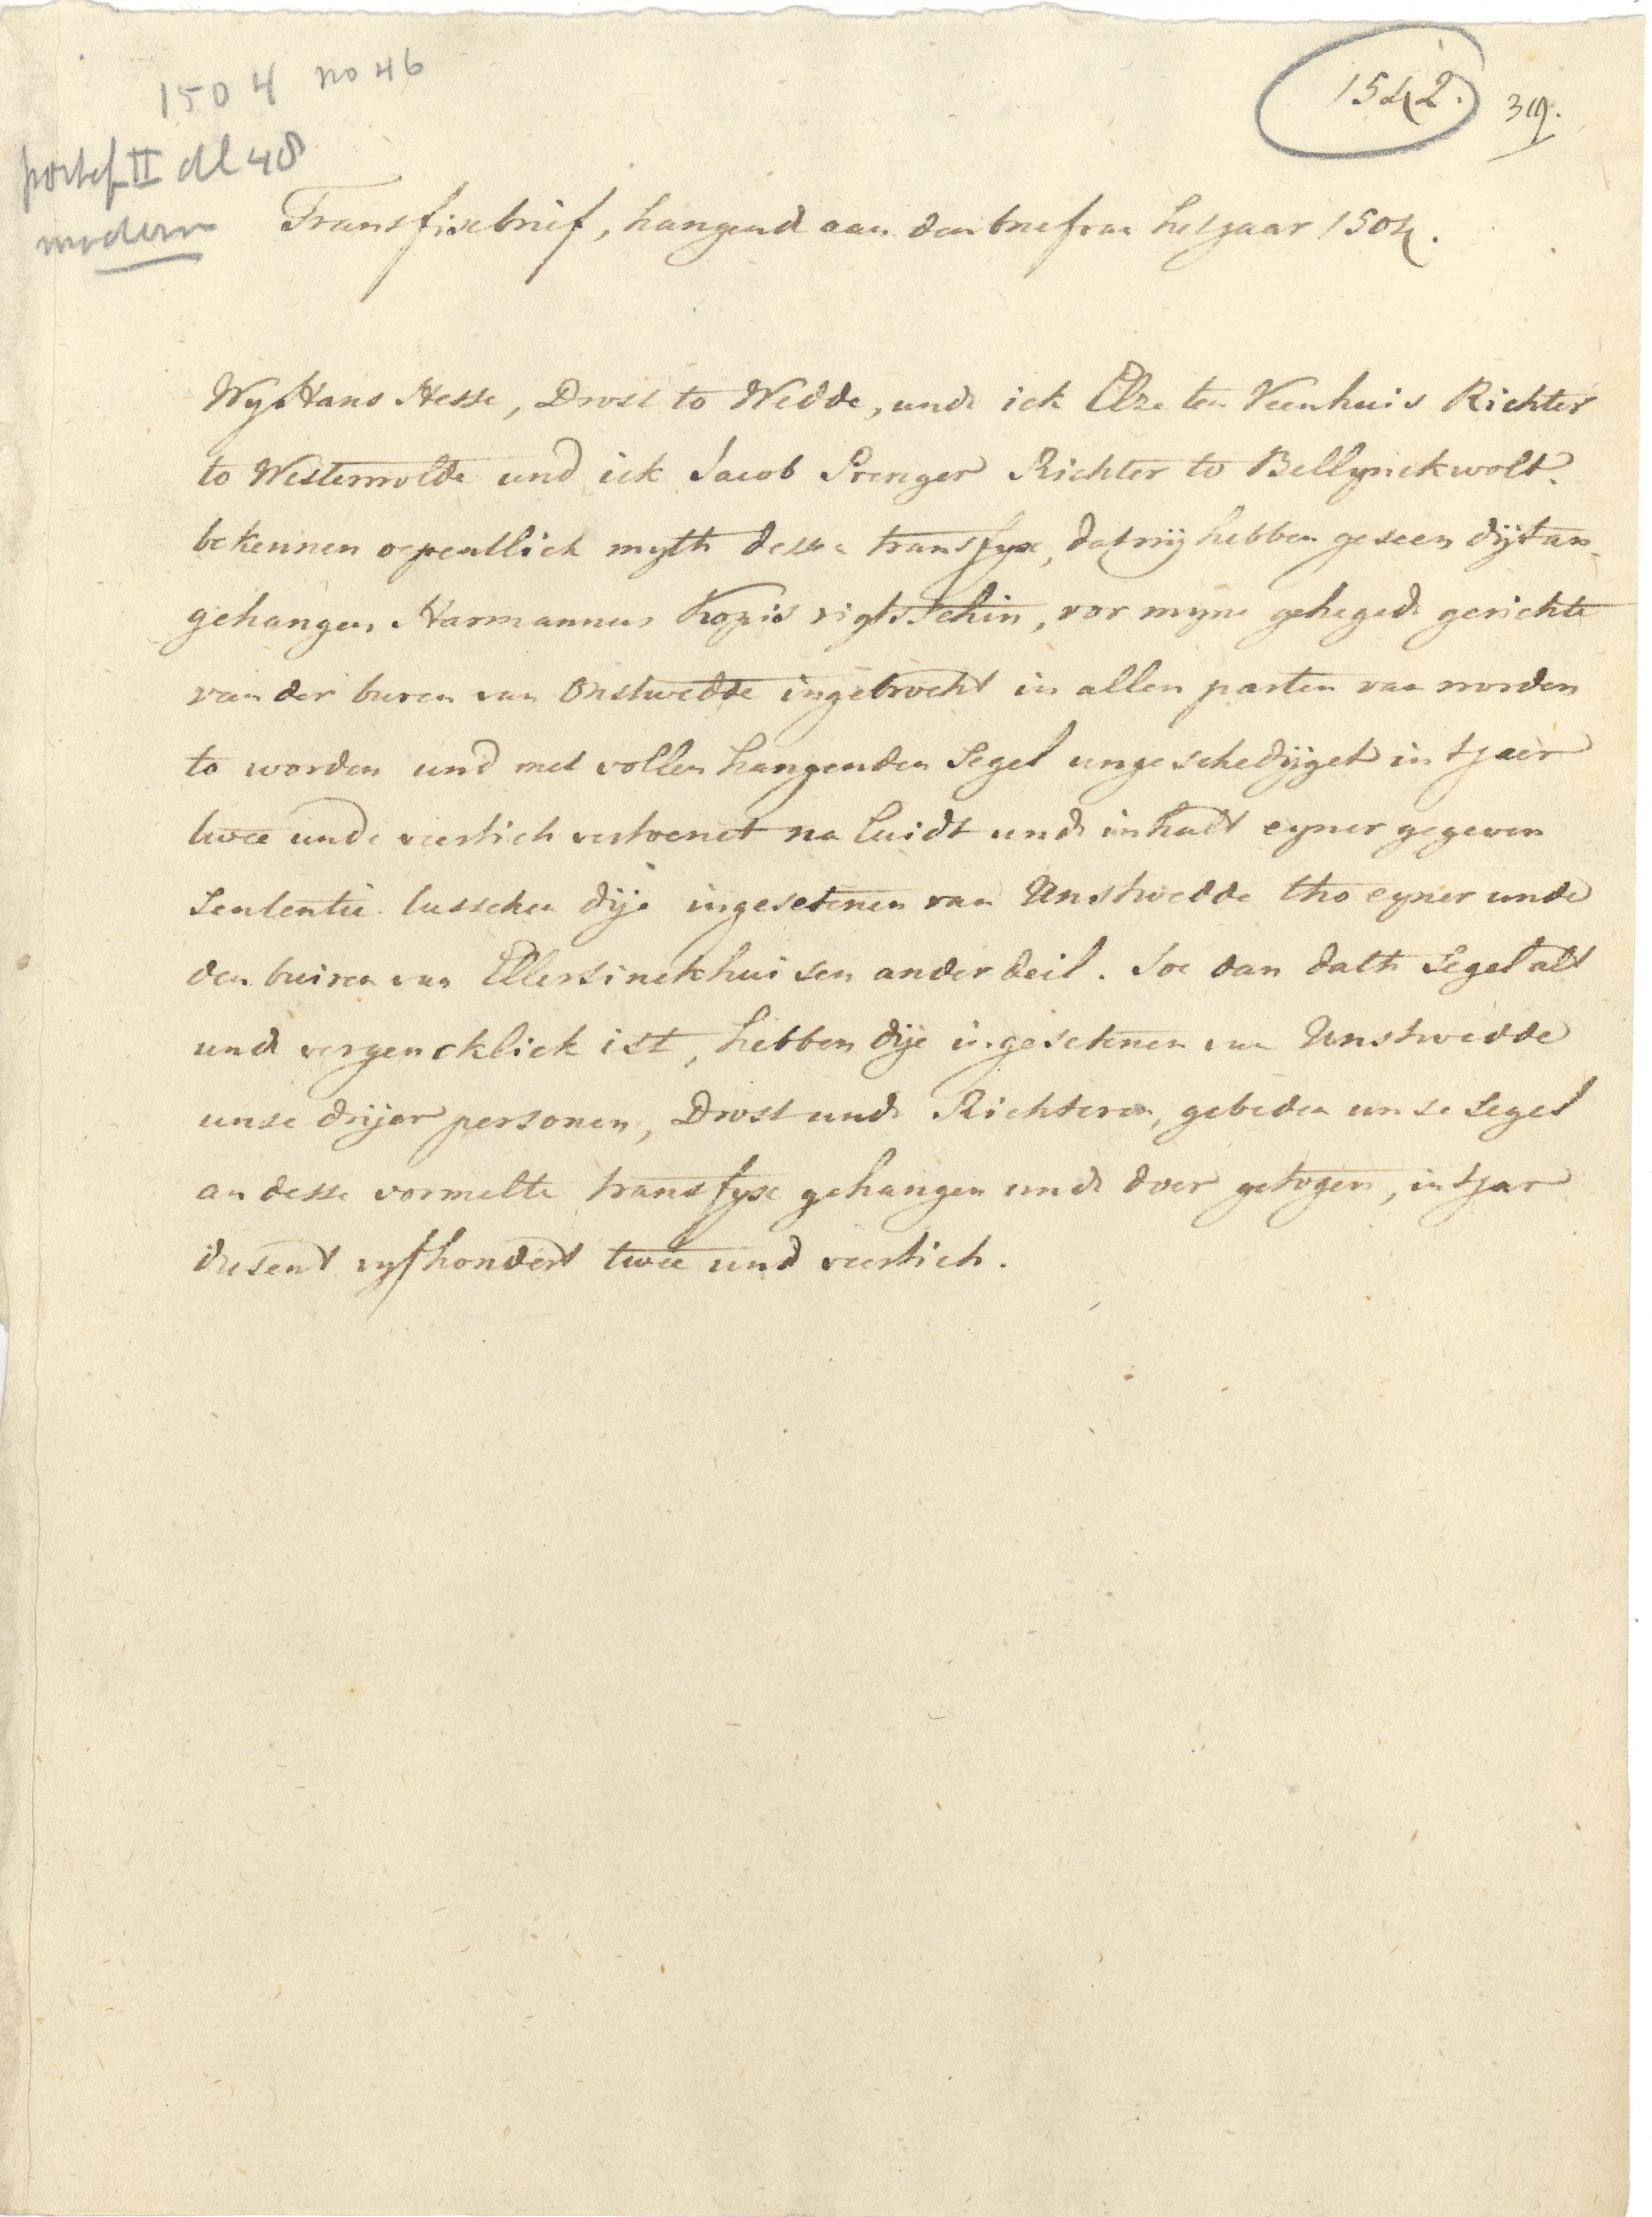 1504 no 46
1542. 39.
portef II dl 48
modern
Transfixbrief, hangend aan den brief van het jaar 1504.
Wy Hans Hesse, Drost to Wedde, unde ick Elze ten Veenhuis Richter
to Westerwolde und ick Jacob Prenger Richter to Bellynckwolt.
bekennen oepentlich myth desse transfyxe, dat wij hebben geseen dijt an-
gehangen Harmannus Kopis rigtsschin, vor myne gehegede gerichte
van der buren van Onstwedde ingebrocht in allen parten van worden
to worden und met vollen hangenden Segel ungeschedijget in tjaer
twee unde veertich vertoenet na luidt unde inhalt eyner gegeven
Sententie tusschen dije ingesetenen van Unstwedde tho eyner unde
den buiren van Ellersinckhuisen ander deil. Soe dan dath Segel alt
unde vergencklick ist, hebben dije ingesetenen van Unstwedde
unse drijer personen, Drost unde Richteren, gebeden unse Segel
an desse vormelte transfyxe gehangen unde doer getogen, in tjar
dusent vyfhondert twee und veertich.